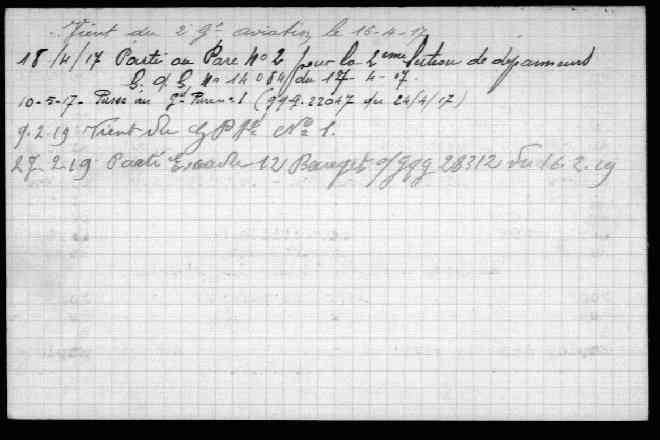 Vient du 2e Gt aviation le 15-4-17
18/4/17 Parti au Parc No 2 pour la 2eme Section de
G. Q. G. No 14084 du 17-4-17.
10-5-17- Passé au Gd Parc No 1 (GQG. 22047 du 24/4/17)
9.2.19 Vient du G P No 1.
27 2 19 Parti Escadre 12 Breguet o/GQG 28312 du 16.2.19